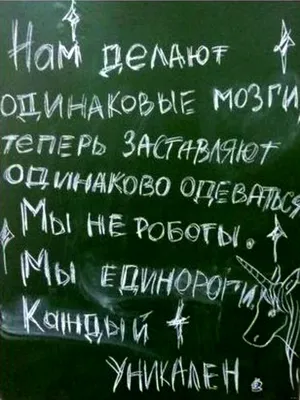 Нам делают
одинаковые мозги,
теперь заставляют
одинаково одеваться
Мы не роботы.
Мы единороги
Каждый
уникален.